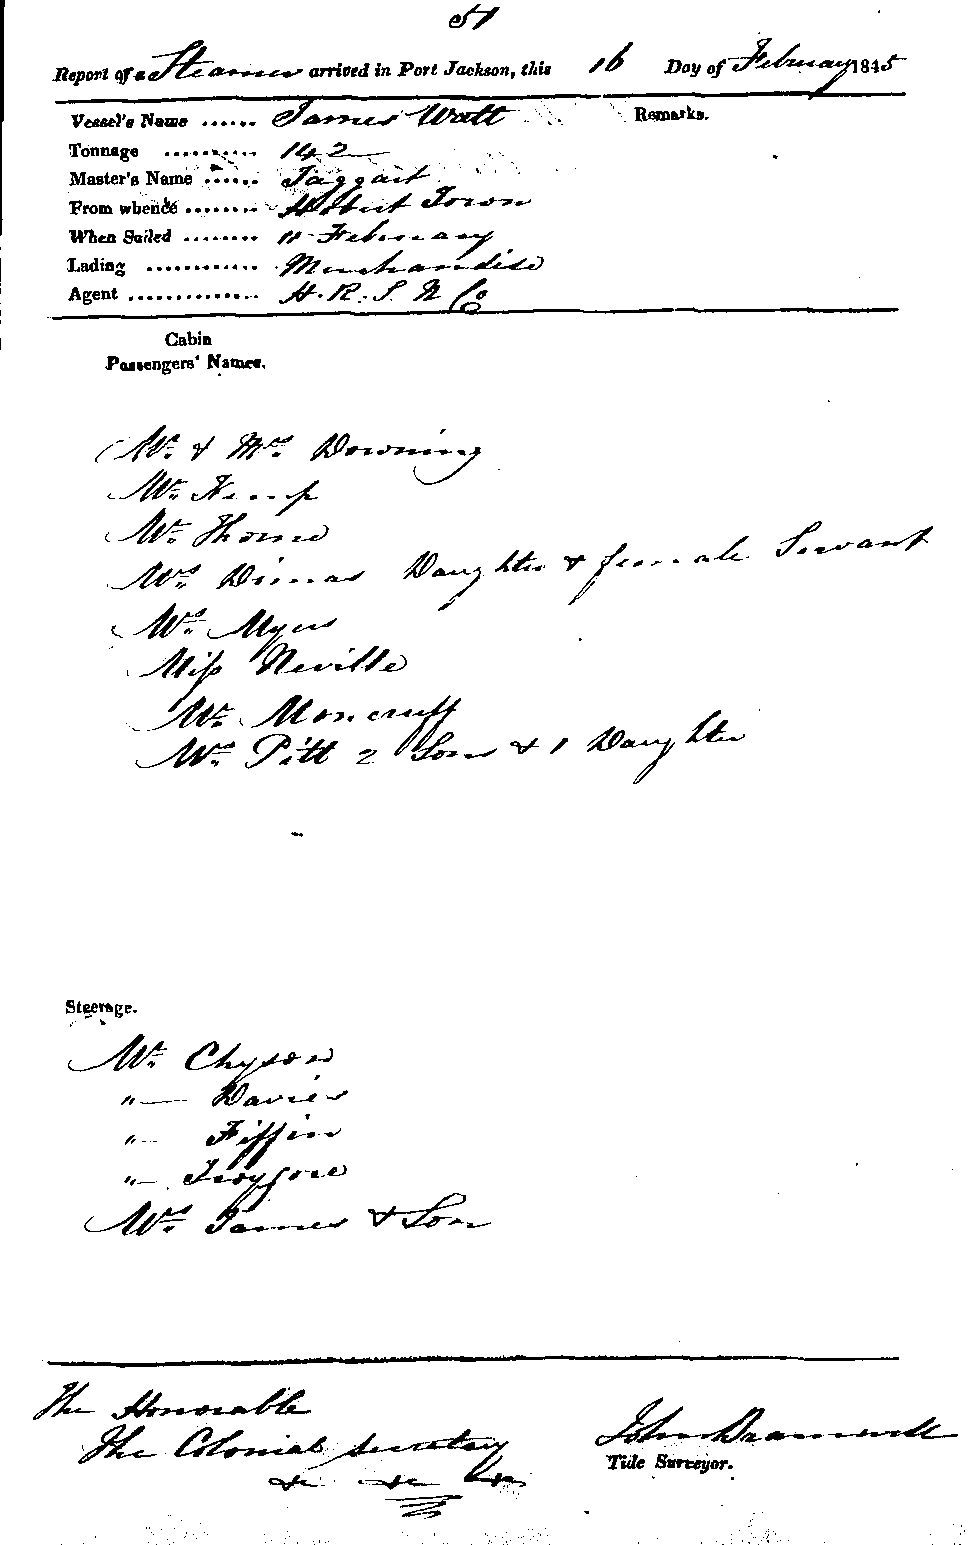 51
Report of a Steamer arrived in Port Jackson, this 16 Day of February 1845
Vessel's Name ...... James Watt
Remarks.
Tonnage .......... 142
Master's Name ...... Taggart
From whence ........ Hobart Town
When Sailed ........ 11 February
Lading ............ Merchandise
Agent .............. H. R. S. N Co
Cabin
Passengers' Names.
Mr. & Mrs. Downing
Mr. Kemp
Mr. Thorne
Mrs. Dumas Daughter & female Servant
Mrs. Myers
Miss Neville
Mr. Moncrieff
Mrs. Pitt 2 Sons & 1 Daughter
Steerage.
Mr. Chyson
"— Davies
"— Fiffin
"—
Mrs. James & Son
The Honorable
The Colonial Secretary
&c &c &c
John Bramwell
Tide Surveyor.